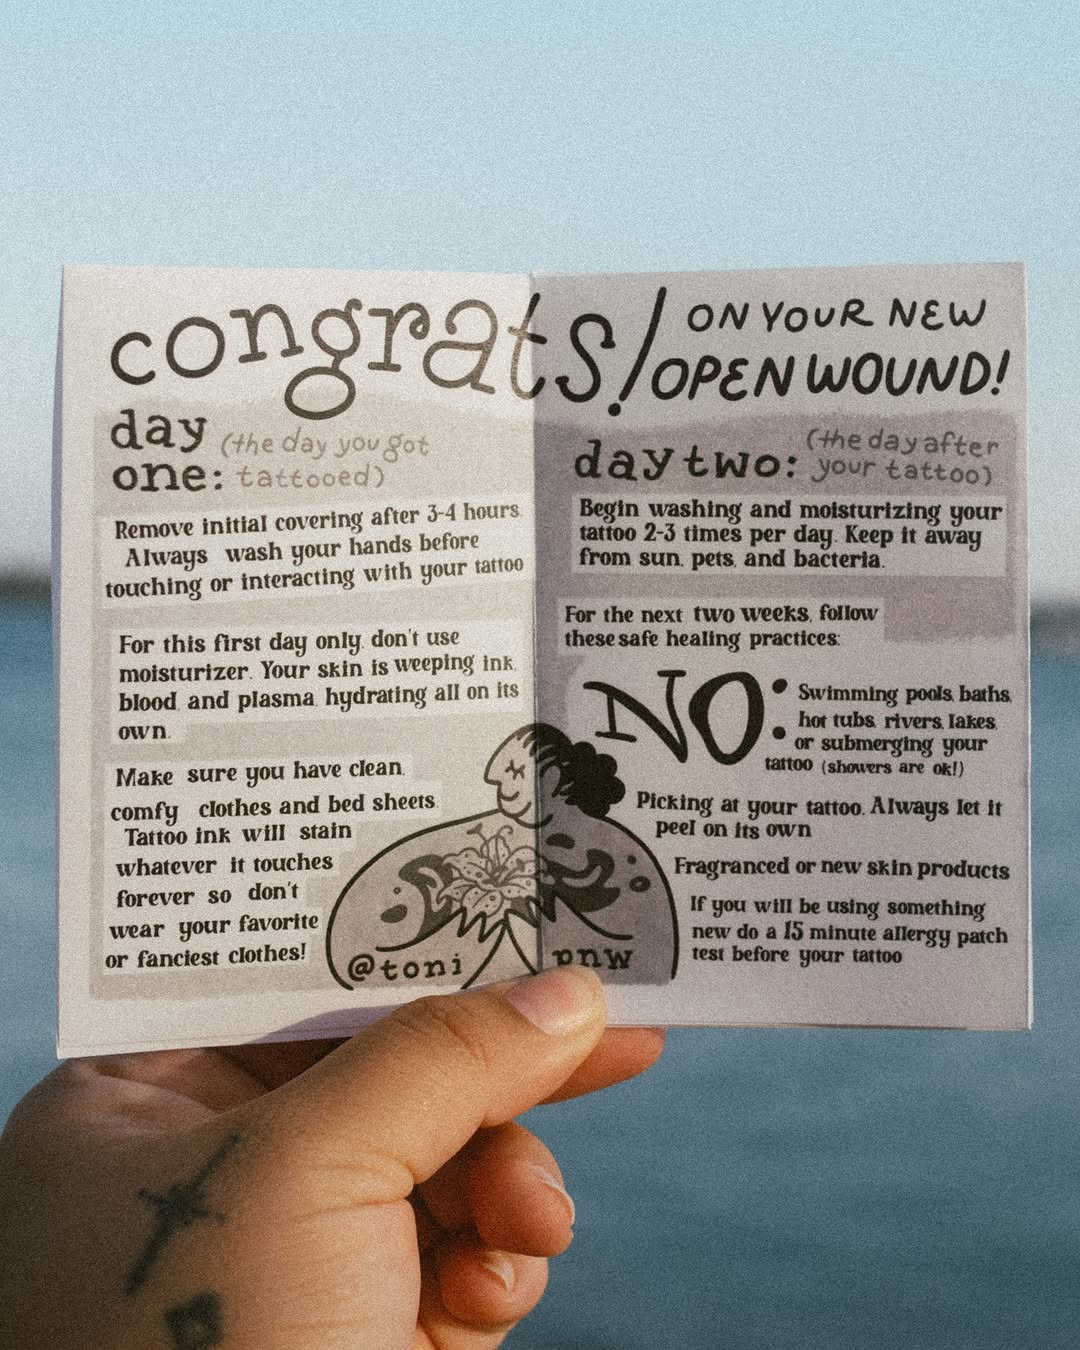 congrats! ON YOUR NEW
OPEN WOUND!
day (the day you got
one: tattooed)
Remove initial covering after 3-4 hours.
Always wash your hands before
touching or interacting with your tattoo
For this first day only, don't use
moisturizer. Your skin is weeping ink,
blood, and plasma, hydrating all on its
own.
Make sure you have clean,
comfy clothes and bed sheets.
Tattoo ink will stain
whatever it touches
forever so don't
wear your favorite
or fanciest clothes!
@toni pnw
day two: (the day after
your tattoo)
Begin washing and moisturizing your
tattoo 2-3 times per day. Keep it away
from sun, pets, and bacteria.
For the next two weeks, follow
these safe healing practices:
NO: Swimming pools, baths,
hot tubs, rivers, lakes,
or submerging your
tattoo (showers are ok!)
Picking at your tattoo. Always let it
peel on its own
Fragranced or new skin products
If you will be using something
new do a 15 minute allergy patch
test before your tattoo